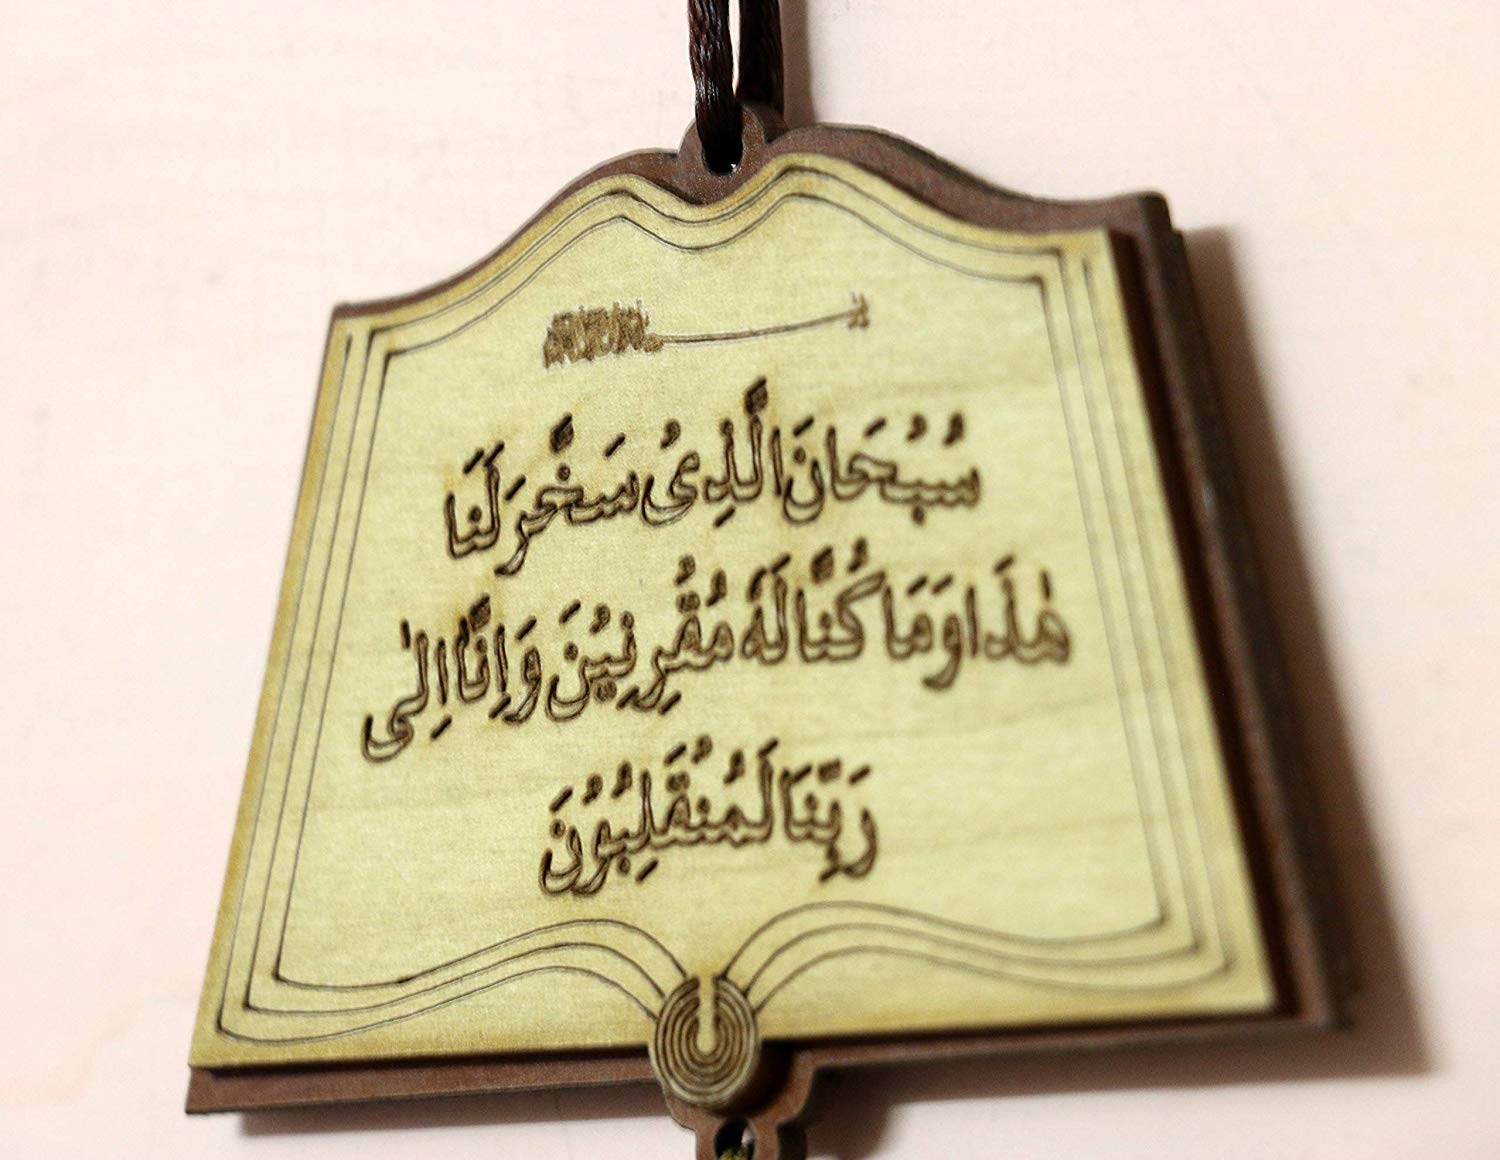 سُبْحَانَ الَّذِى سَخَّرَ لَنَا
هٰذَا وَمَا كُنَّا لَهُ مُقْرِنِيْنَ وَاِنَّا اِلٰى
رَبِّنَا لَمُنْقَلِبُوْنَ